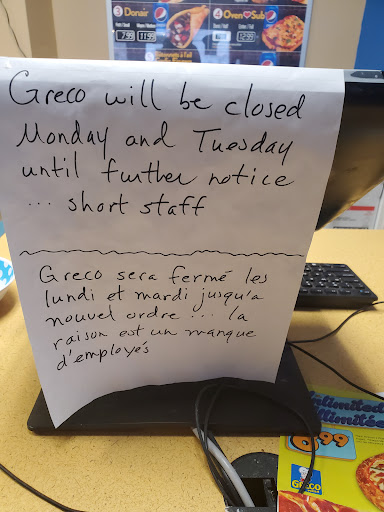 3 Donair
7.99 11.99
4 Oven Sub
12.99
Greco will be closed
Monday and Tuesday
until further notice
... short staff
Greco sera fermé les
lundi et mardi jusqu'a
nouvel ordre ... la
raison est un manque
d'employés
6.99
Greco